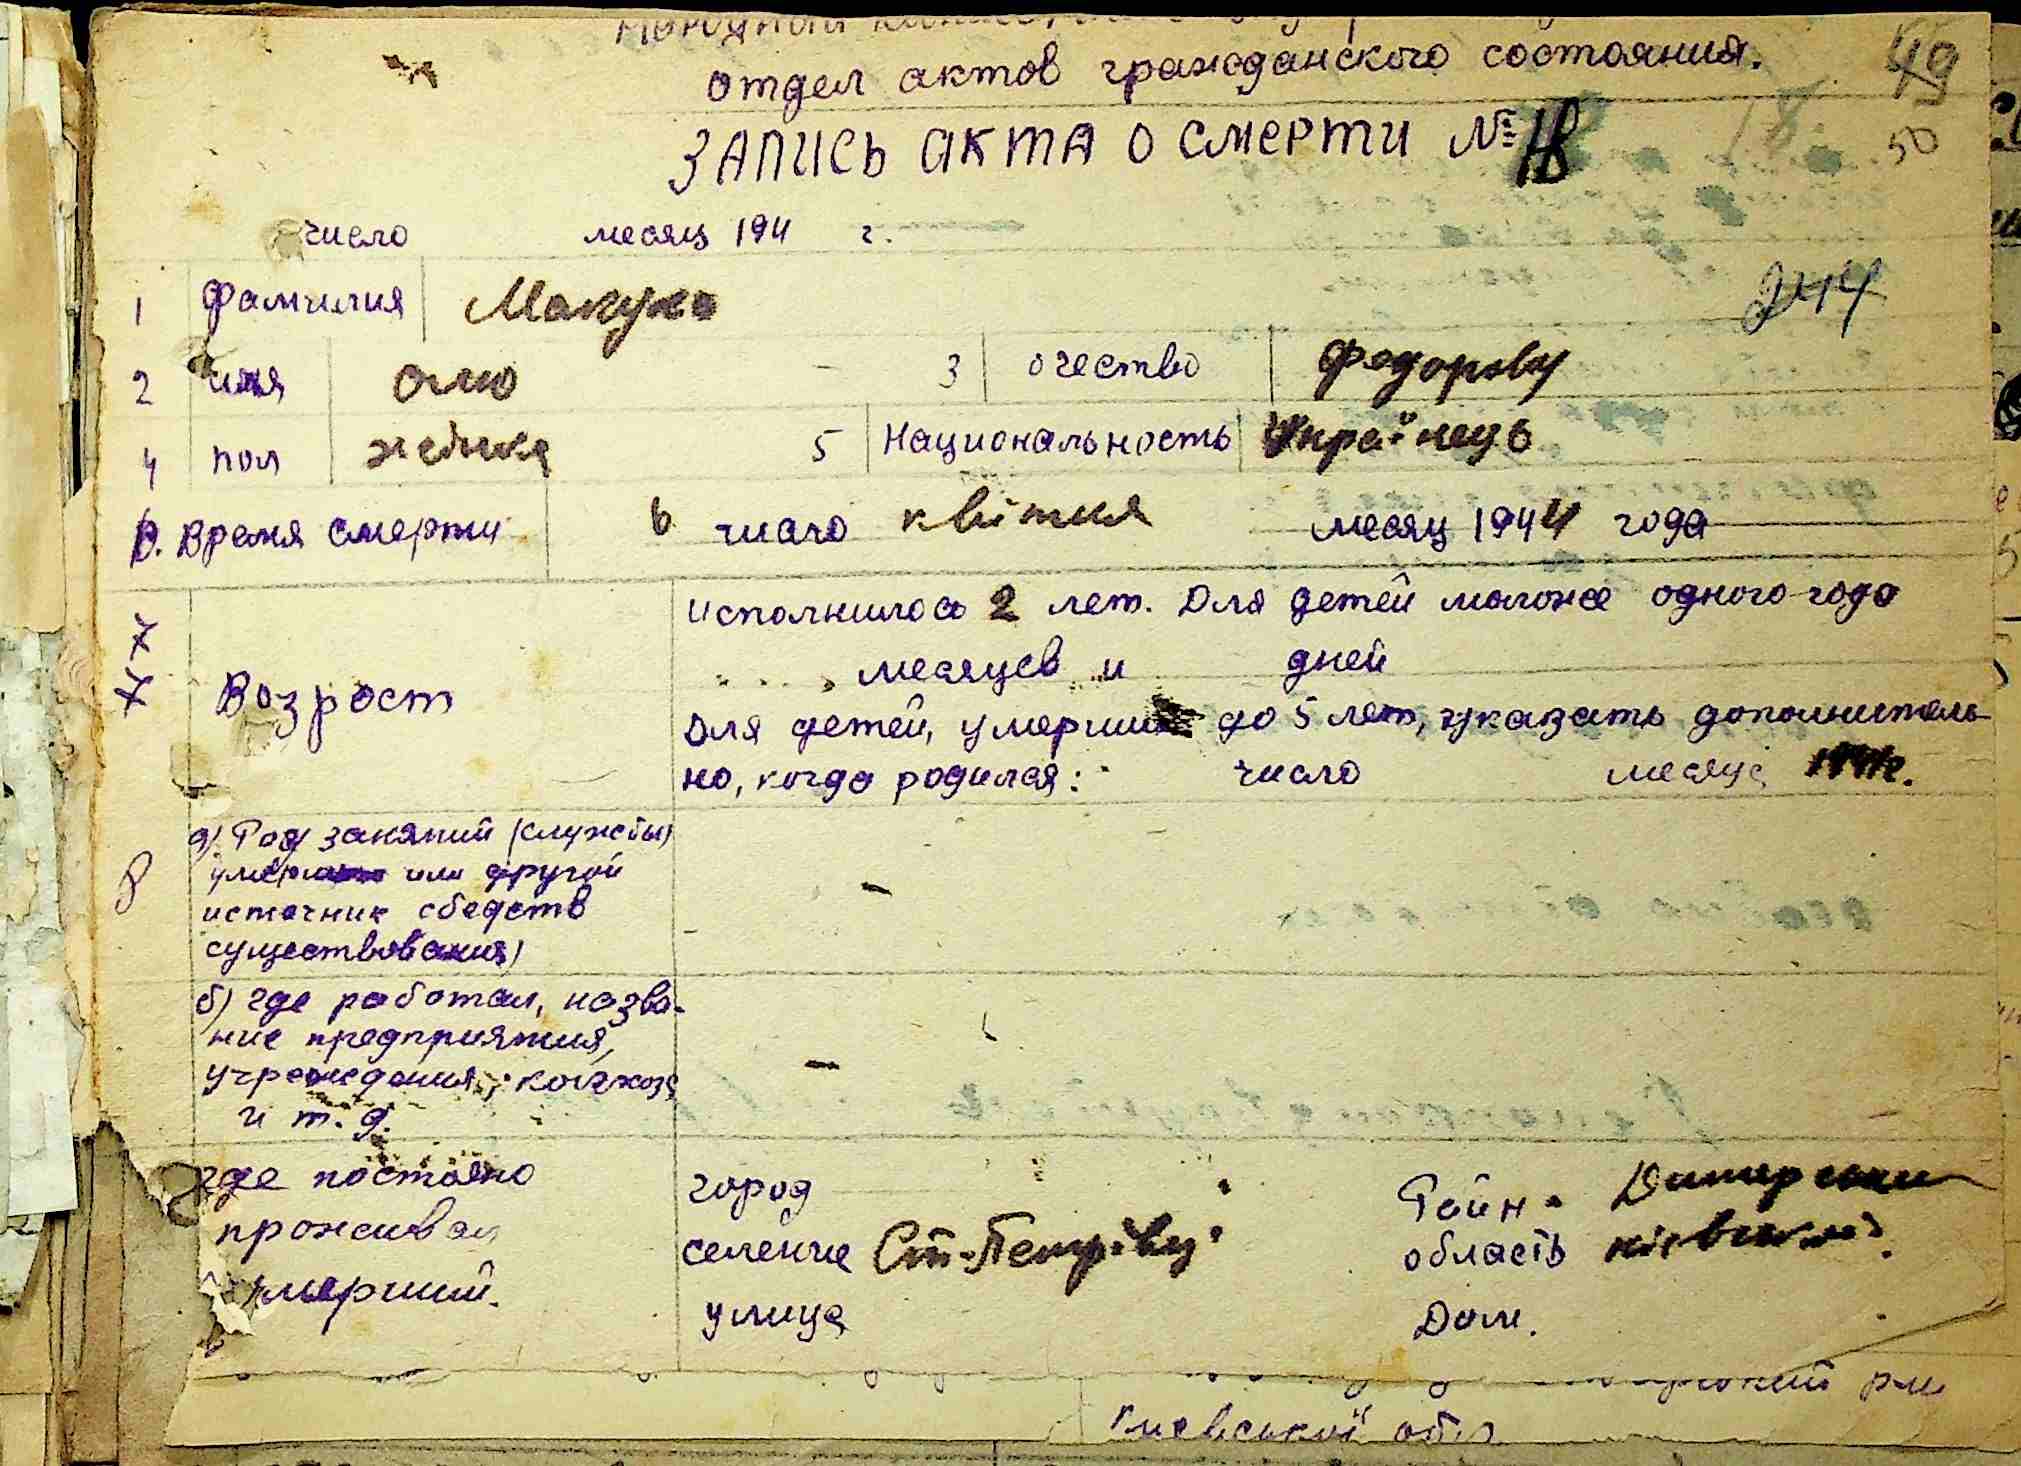 отдел актов гражданского состояния.
49
50
ЗАПИСЬ АКТА О СМЕРТИ № 18
число месяц 194 г.
1 фамилия
244
2 имя 3 очество
4 пол жіінка 5 Национальность Українець
6. Время смерти 6 число квітня месяц 1944 года
7 Возрост
исполнилось 2 лет. Для детей моложе одного года
месяцев и дней
Для детей, умерших до 5 лет, указать дополнитель-
но, когда родился: число месяца
8 а) Род занятий (службы)
или другой
источник сбедств
существования)
-
б) где работал, назва-
ние предприятия,
учреждения, колхоза
и т. д.
-
где постояно
проживал
умерший.
город Район Димерський
селение Ст-Петрівці область
улица Дом.
Киевської обл